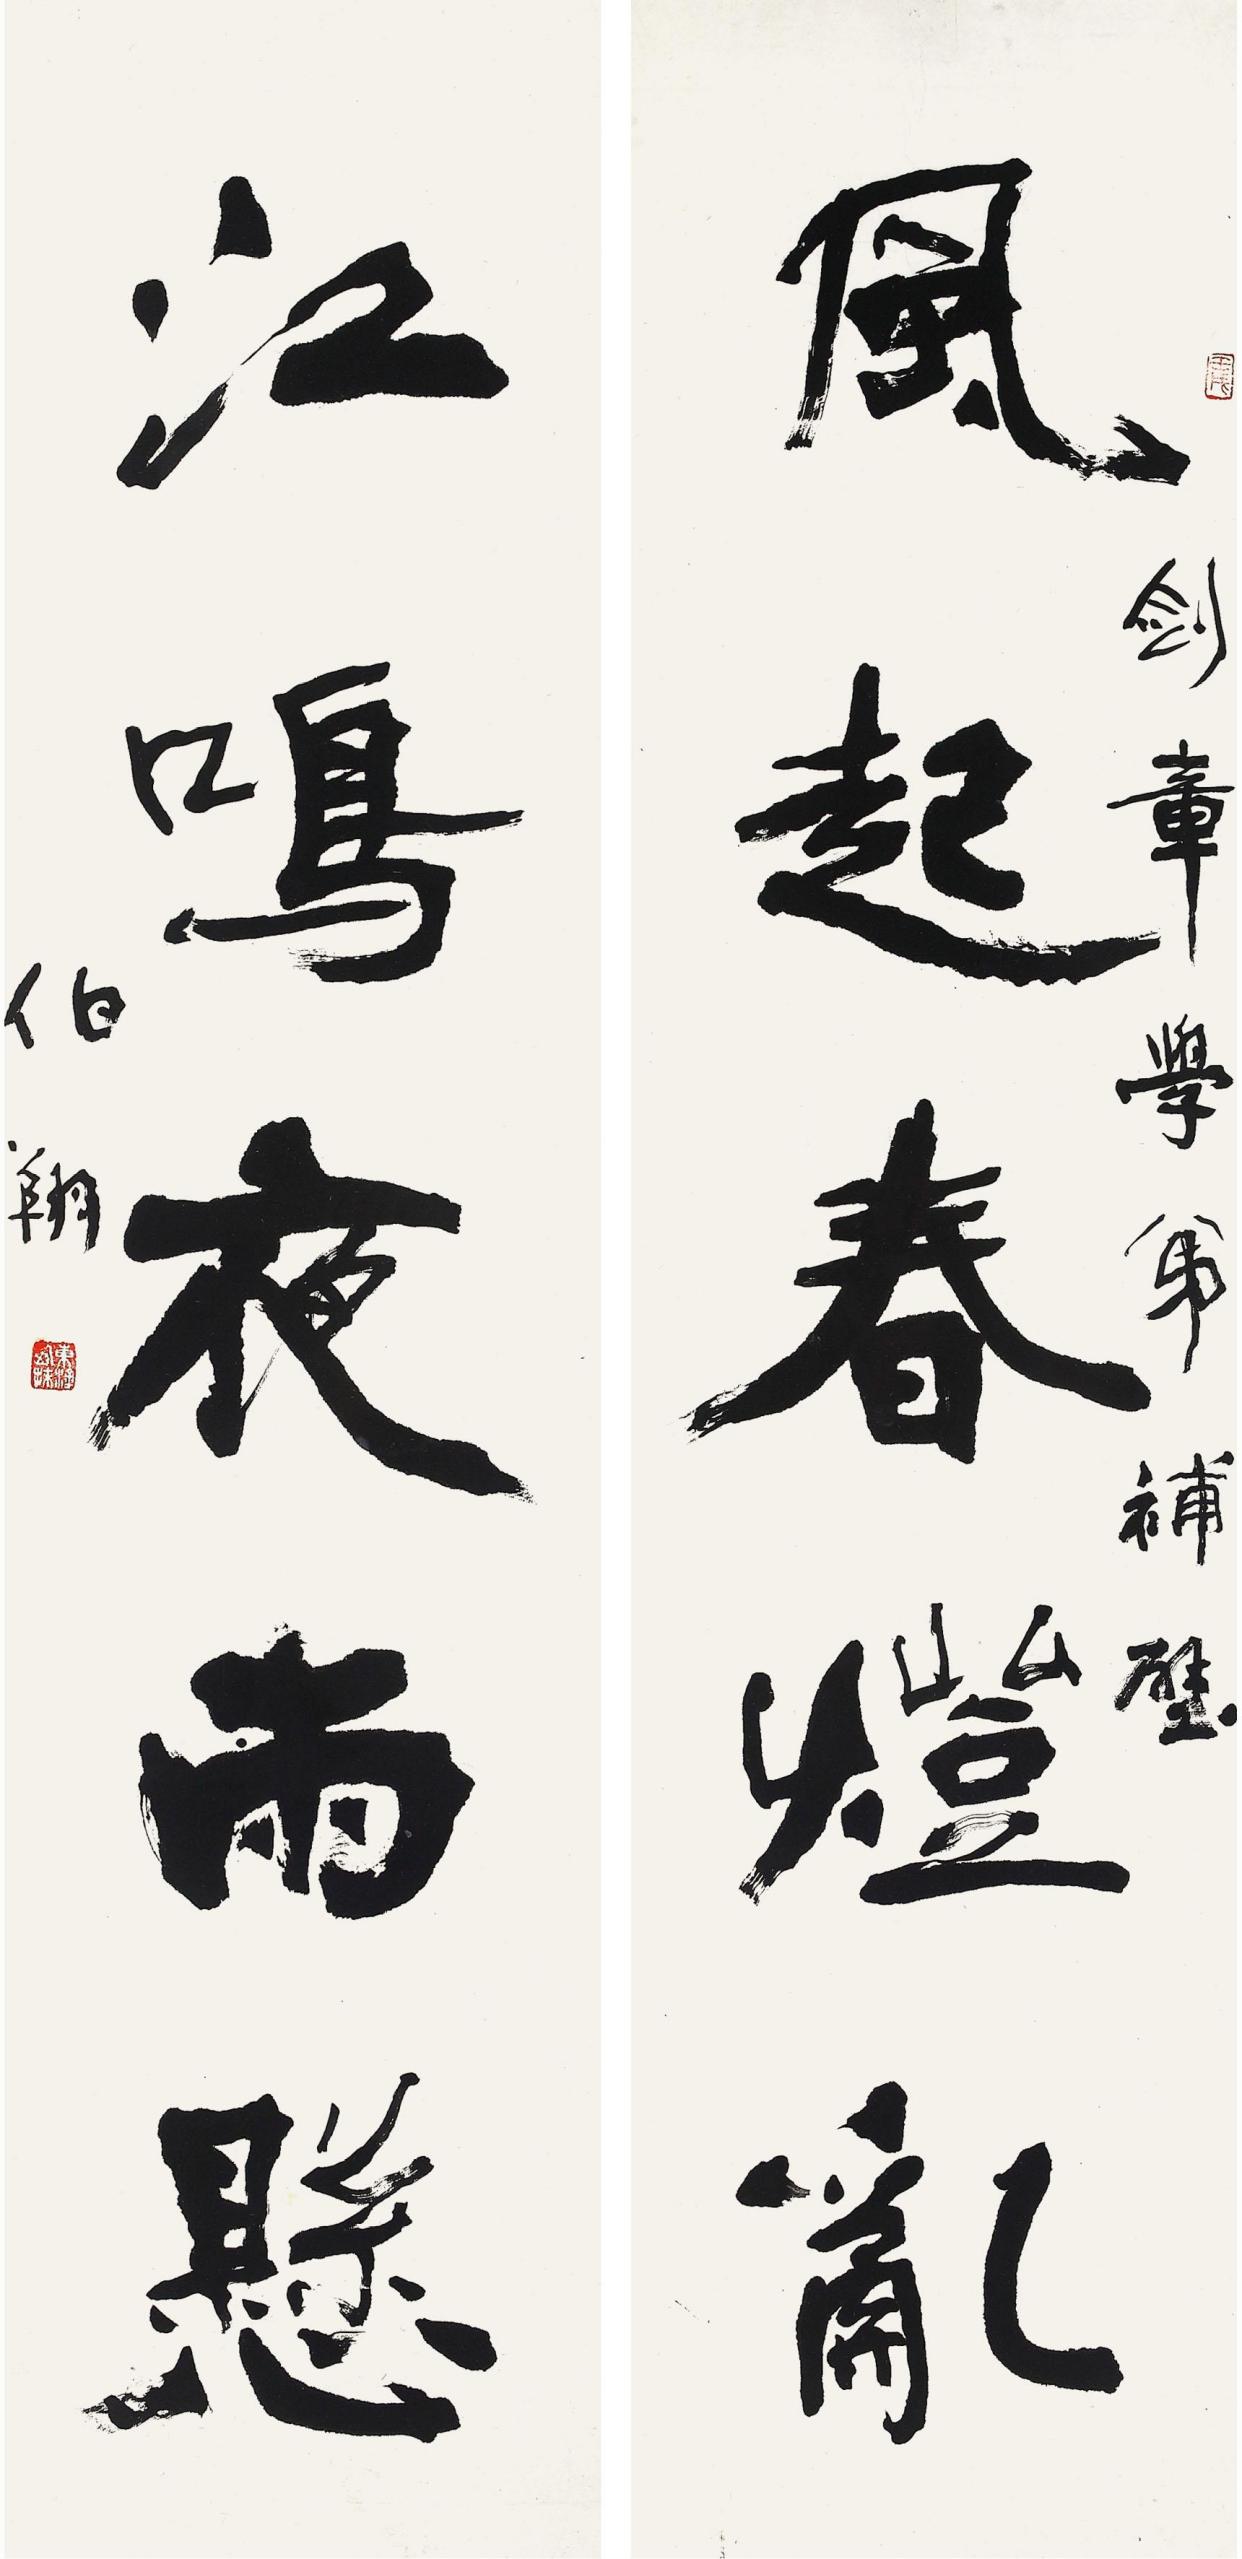 風起春燈亂
劍章學弟補壁
江鳴夜雨懸
伯翔